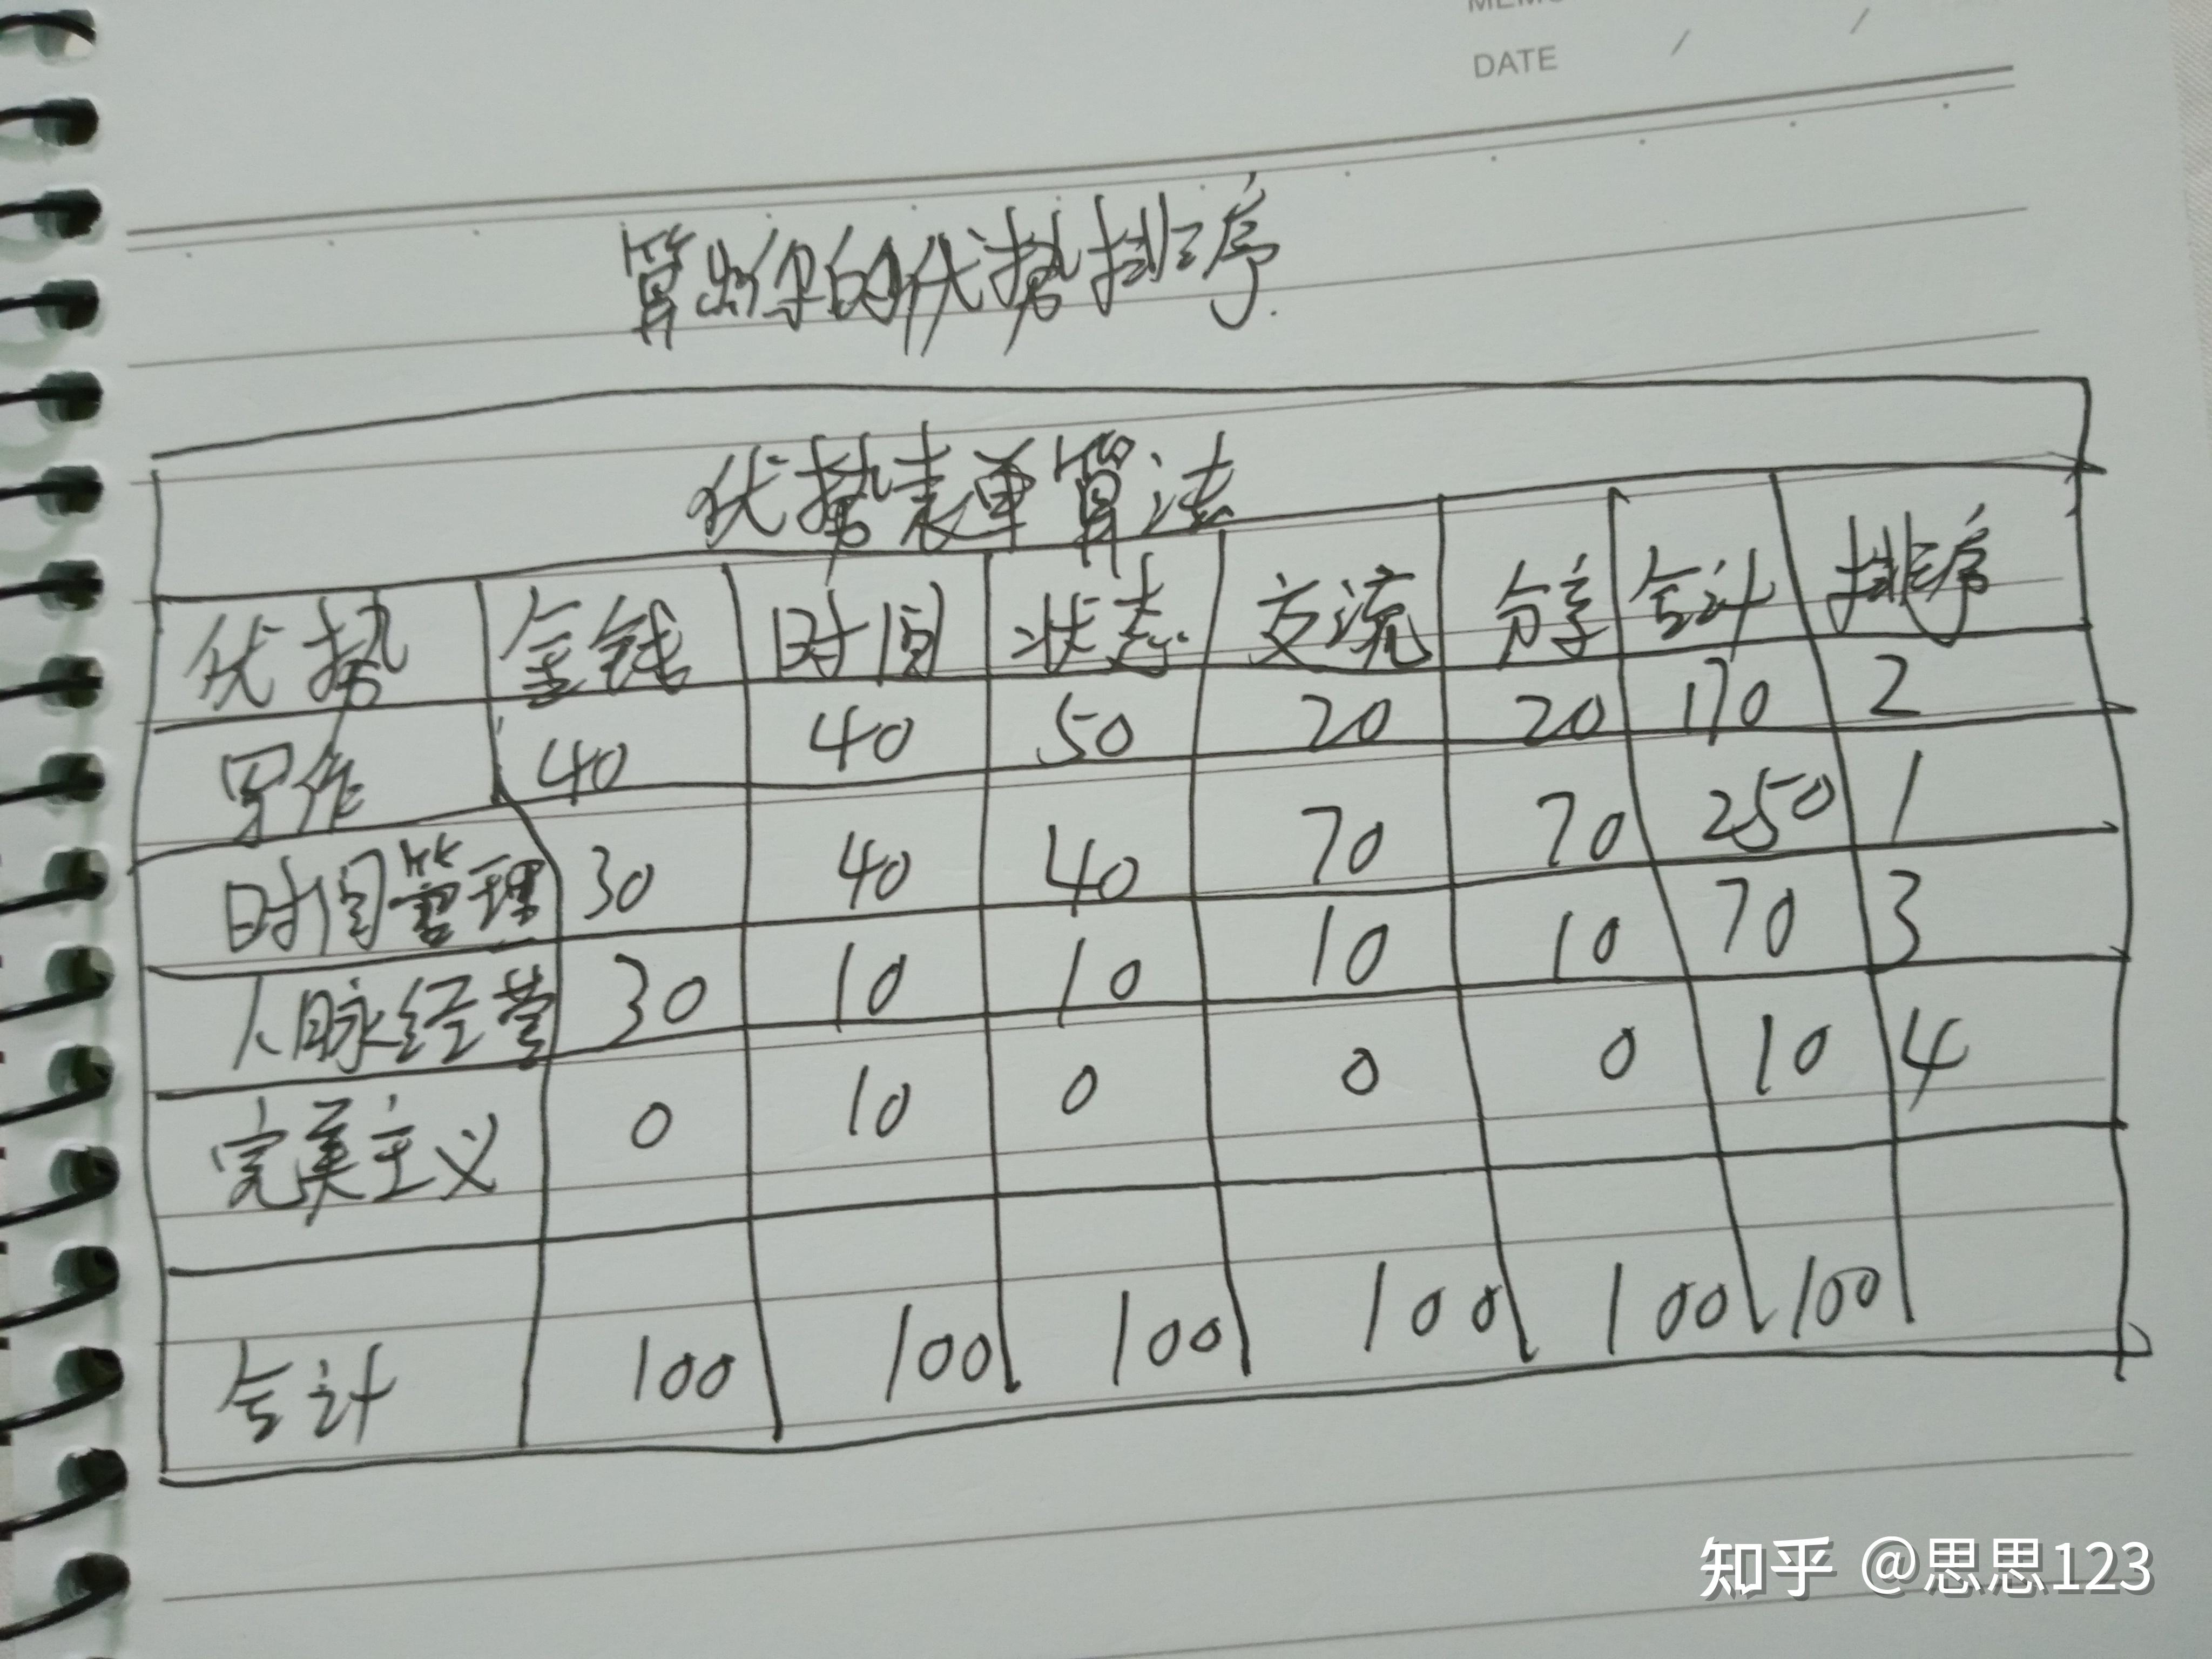 DATE / /
算出你的优势排序.
优势表单算法
优势 金钱 时间 状态 交流 分享 合计 排序
写作 40 40 50 20 20 170 2
时间管理 30 40 40 70 70 250 1
人脉经营 30 10 10 10 10 70 3
完美主义 0 10 0 0 0 10 4
合计 100 100 100 100 100 100
知乎 @思思123